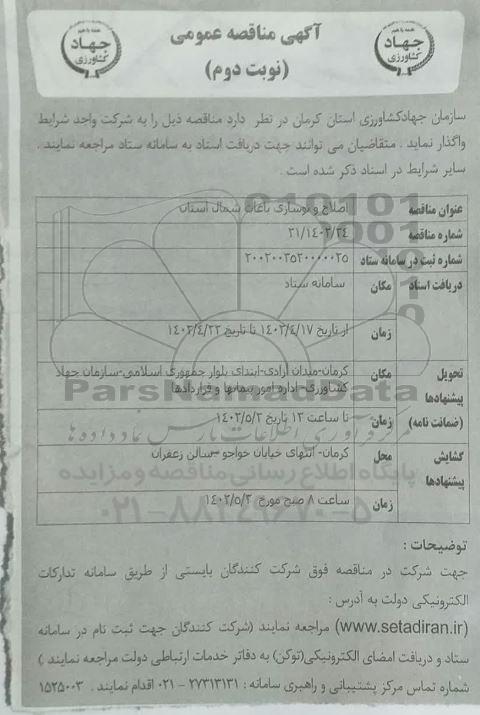 آگهی مناقصه عمومی
(نوبت دوم)
همه با هم
جهاد
کشاورزی
همه با هم
جهاد
کشاورزی
سازمان جهادکشاورزی استان کرمان در نظر دارد مناقصه ذیل را به شرکت واجد شرایط
واگذار نماید . متقاضیان می توانند جهت دریافت اسناد به سامانه ستاد مراجعه نمایند .
سایر شرایط در اسناد ذکر شده است .
عنوان مناقصه اصلاح و نوسازی باغات شمال استان
شماره مناقصه ۲۱/۱۴۰۳/۲۴
شماره ثبت در سامانه ستاد ۲۰۰۲۰۰۳۵۲۰۰۰۰۰۲۵
دریافت اسناد مکان سامانه ستاد
زمان از تاریخ ۱۴۰۳/۴/۱۷ تا تاریخ ۱۴۰۳/۴/۲۲
تحویل پیشنهادها (ضمانت نامه) مکان کرمان-میدان آزادی-ابتدای بلوار جمهوری اسلامی-سازمان جهاد
کشاورزی- اداره امور پیمانها و قراردادها
زمان تا ساعت ۱۳ تاریخ ۱۴۰۳/۵/۲
گشایش پیشنهادها محل کرمان- انتهای خیابان خواجو -سالن زعفران
زمان ساعت ۸ صبح مورخ ۱۴۰۳/۵/۳
ParsNamadData
مرکز فرآوری اطلاعات پارس نماد داده ها
پایگاه اطلاع رسانی مناقصه و مزایده
۰۲۱-۸۸۳۴۹۶۷۰-۵
توضیحات :
جهت شرکت در مناقصه فوق شرکت کنندگان بایستی از طریق سامانه تدارکات
الکترونیکی دولت به آدرس :
(www.setadiran.ir) مراجعه نمایند (شرکت کنندگان جهت ثبت نام در سامانه
ستاد و دریافت امضای الکترونیکی(توکن) به دفاتر خدمات ارتباطی دولت مراجعه نمایند )
شماره تماس مرکز پشتیبانی و راهبری سامانه : ۲۷۳۱۳۱۳۱ - ۰۲۱ اقدام نمایند . ۱۵۲۵۰۰۳